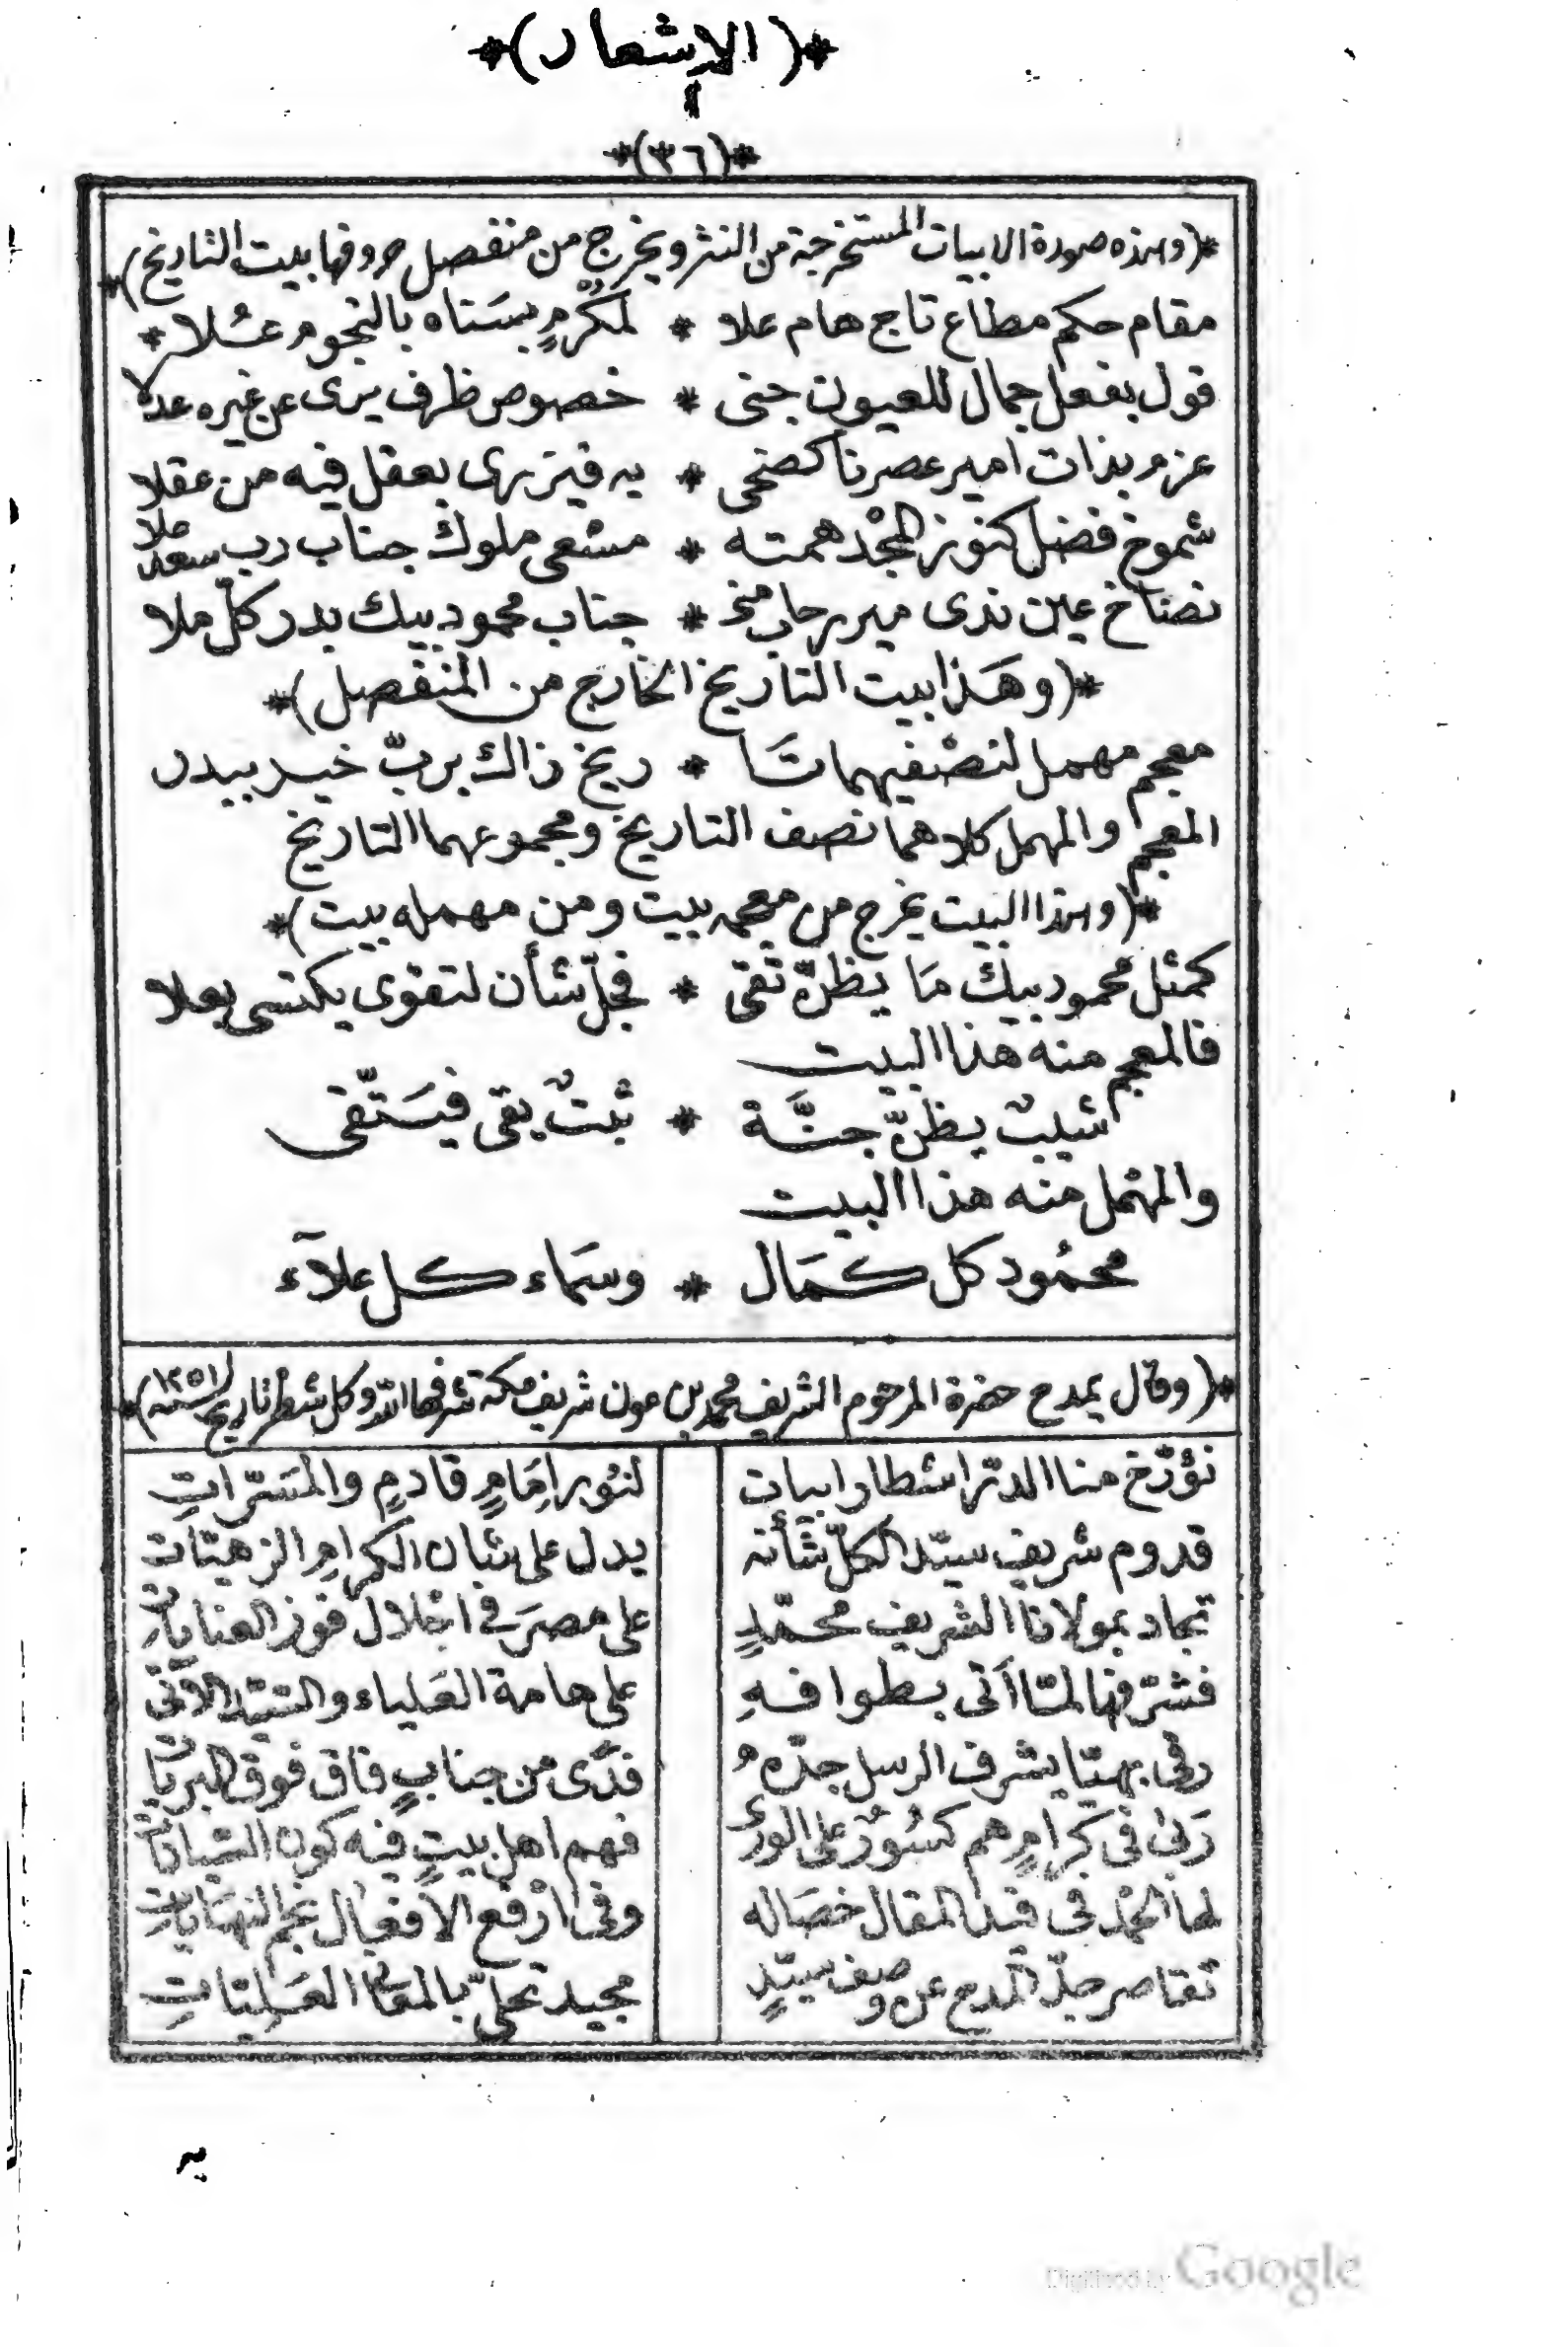 *(الإشعار)*
*(٣٦)*
*(وهذه صورة الابيات المستخرجة من النثر ويخرج من منفصل حروفها بيت التاريخ)*
مقام حكم مطاع تاج هام علا * لمكرم بسناه بالنجوم عُلا *
قول بفعل جمال للعيون جنى * خصوص ظرف يرى عن غيره عدلا
عزم بذات امير عصرنا كضحى * به فيزهى بعقل فيه من عقلا
شموخ فضل كنوز المجد همته * مسعى ملوك جناب رب سعد ملا
نضاخ عين ندى مير رحاب منخ * جناب محمود بيك بدر كلّ ملا
*(وهَذا بيت التاريخ الخارج من المنفصل)*
معجم مهمل لنصْفيهما تَا * ريخ ذاك بربّ خير بيدر
المعجم والمهمل كلاهما نصف التاريخ ومجموعهما التاريخ
*(وهذا البيت يخرج من معجمه بيت ومن مهمله بيت)*
كمثل محمود بيك مَا يظلّ تقى * فجلّ شأن لتقوى يكتسى بعلا
فالمعجم منه هذا البيت
شيبٌ يظنّ جنَّة * ثبتٌ بقى فيَستّقى
والمهمل منه هذا البيت
محمُود كل كمَال * وسمَاء كل علآء
*(وقال يمدح حضرة المرحوم الشريف محمد بن عون شريف مكة شرفها الله وكل شطر تاريخ سنة ١٢٥١)*
نؤرّخ منا الدرّ اشطار ابيات لنُور اِمَامٍ قادمٍ والمَسَرّاتِ
قدوم شريف سيّد الكلّ شأنه يدل على شان الكرامِ الزهيّات
تجاد بمولانا الشريف محمّدٍ على مصرَ فى اجْلال فوز العناياتِ
فشرّفها لمّا اَتى بطوافهِ على هامة العَلياء والسيّد الآتى
رقى بهيّا يشرف الرسل جدّهُ فدًى من جنابٍ فاق فوق البريّات
ربى فى كرامٍ هم كسُورٌ على الورى فهم اهل بيتٍ فيه كون السيادات
لها الحمْد فى قيد المقال خصَاله وفى ارْفع الافعَال نجم النهَاياتِ
تقاصر جلّ المدح عن وصف سيّدٍ مجيد تحلّى بالمعَالى العَليّاتِ
به
Digitized by Google